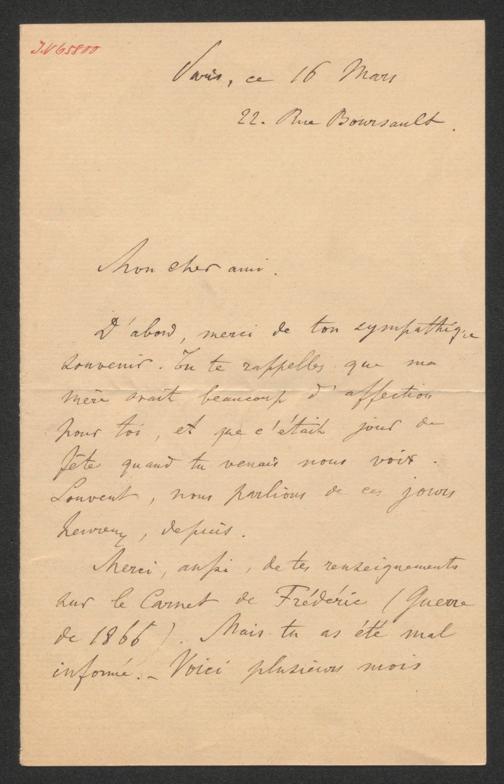 IN 65800
Paris, ce 16 Mars
22. Rue Boursault.
Mon cher ami.
D'abord, merci de ton sympathique
souvenir. Tu te rappelles que ma
mère avait beaucoup d'affection
pour toi, et que c'était jour de
fête quand tu venais nous voir.
Souvent, nous parlions de ces jours
heureux, depuis.
Merci, aussi, de tes renseignements
sur le Carnet de Frédéric (Guerre
de 1866). Mais tu as été mal
informé. – Voici plusieurs mois